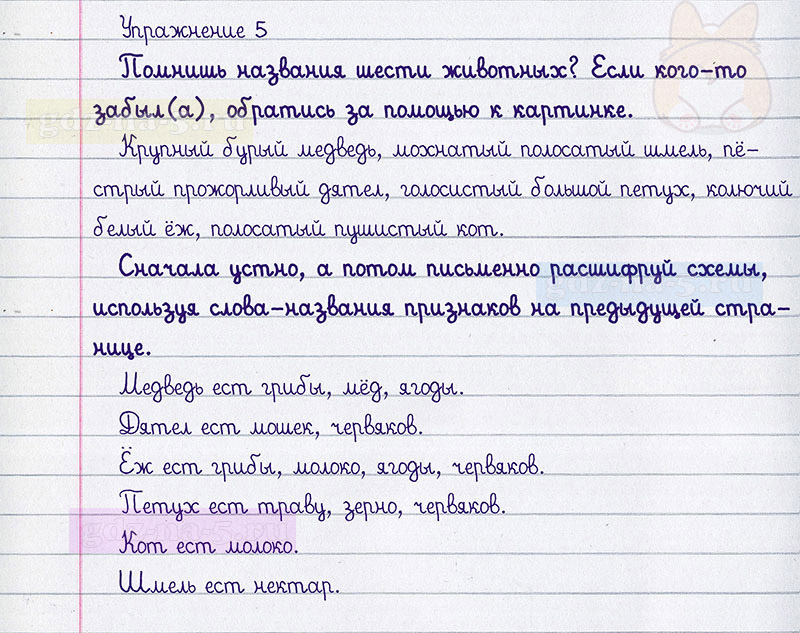 Упражнение 5
Помнишь названия шести животных? Если кого-то
забыл(а), обратись за помощью к картинке.
Крупный бурый медведь, мохнатый полосатый шмель, пё-
стрый прожорливый дятел, голосистый большой петух, колючий
белый ёж, полосатый пушистый кот.
Сначала устно, а потом письменно расшифруй схемы,
используя слова-названия признаков на предыдущей стра-
нице.
Медведь ест грибы, мёд, ягоды.
Дятел ест мошек, червяков.
Ёж ест грибы, молоко, ягоды, червяков.
Петух ест траву, зерно, червяков.
Кот ест молоко.
Шмель ест нектар.
gdz-na-5.ru
gdz-na-5.ru
gdz-na-5.ru